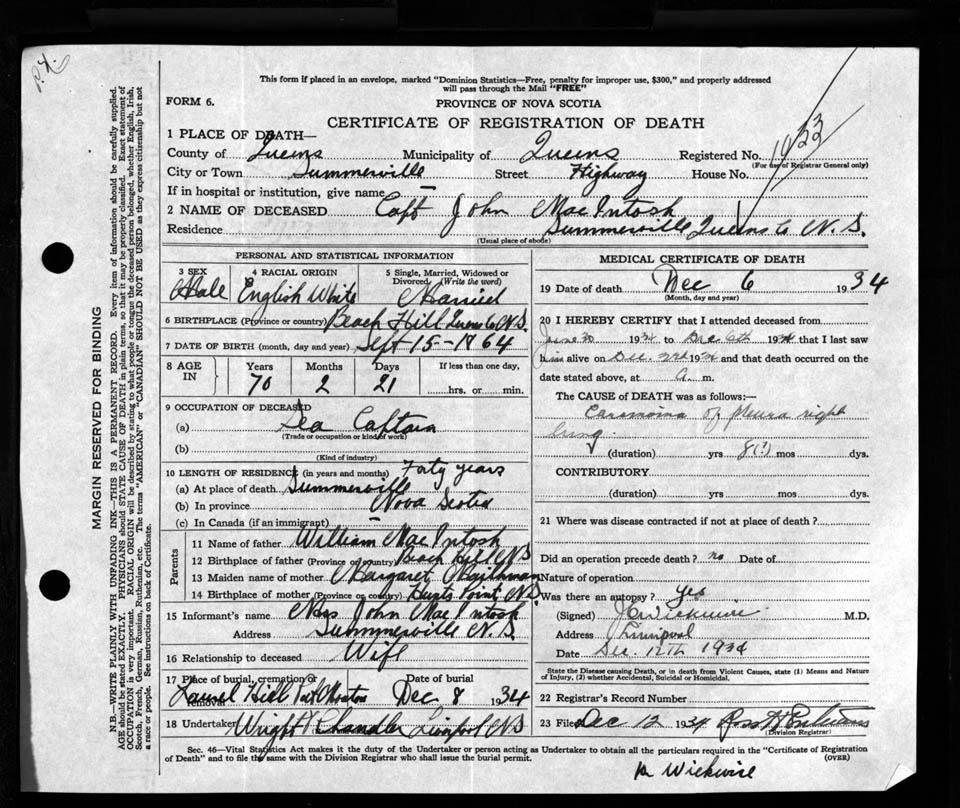 This form if placed in an envelope, marked "Dominion Statistics—Free, penalty for improper use, $300," and properly addressed
will pass through the Mail "FREE"
FORM 6.
PROVINCE OF NOVA SCOTIA
CERTIFICATE OF REGISTRATION OF DEATH
1 PLACE OF DEATH—
County of Queens Municipality of Queens Registered No.
(For use of Registrar General only)
City or Town Summerville Street Highway House No.
If in hospital or institution, give name —
2 NAME OF DECEASED Capt John MacIntosh
Residence Summerville Queens Co N.S.
(Usual place of abode)
PERSONAL AND STATISTICAL INFORMATION
3 SEX 4 RACIAL ORIGIN 5 Single, Married, Widowed or
Divorced (Write the word)
Male English White Married
6 BIRTHPLACE (Province or country) Beach Hill Queens Co N.S.
7 DATE OF BIRTH (month, day and year) Sept 15-1864
8 AGE IN Years Months Days If less than one day,
70 2 21 hrs. or min.
9 OCCUPATION OF DECEASED
(a) Sea Captain
(Trade or occupation or kind of work)
(b)
(Kind of industry)
10 LENGTH OF RESIDENCE (in years and months) Forty years
(a) At place of death Summerville
(b) In province Nova Scotia
(c) In Canada (if an immigrant) —
Parents
11 Name of father William MacIntosh
12 Birthplace of father (Province or country) Beach Hill N.S.
13 Maiden name of mother Margaret
14 Birthplace of mother (Province or country) Hunts Point N.S.
15 Informant's name Mrs John MacIntosh
Address Summerville N.S.
16 Relationship to deceased Wife
17 Place of burial, cremation or removal Date of burial
Laurel Hill Port Mouton Dec 8 1934
18 Undertaker Wright Chandler Liverpool N.S.
MEDICAL CERTIFICATE OF DEATH
19 Date of death Dec 6 1934
(Month, day and year)
20 I HEREBY CERTIFY that I attended deceased from
June 1934 to Dec 6th 1934 that I last saw
him alive on Dec. 1934 and that death occurred on the
date stated above, at a. m.
The CAUSE of DEATH was as follows:—
Carcinoma of Pleura right
lung.
(duration) yrs 8(?) mos dys.
CONTRIBUTORY
(duration) yrs. mos. dys.
21 Where was disease contracted if not at place of death?
Did an operation precede death? no Date of
Nature of operation
Was there an autopsy? yes
(Signed) J C Wickwire M.D.
Address Liverpool
Date Dec. 12th 1934
State the Disease causing Death, or in death from Violent Causes, state (1) Means and Nature
of Injury, (2) whether Accidental, Suicidal or Homicidal.
22 Registrar's Record Number
23 Filed Dec 12 1934
(Division Registrar)
Sec. 46—Vital Statistics Act makes it the duty of the Undertaker or person acting as Undertaker to obtain all the particulars required in the "Certificate of Registration
of Death" and to file the same with the Division Registrar who shall issue the burial permit.
(OVER)
Dr Wickwire
MARGIN RESERVED FOR BINDING
N.B.—WRITE PLAINLY WITH UNFADING INK—THIS IS A PERMANENT RECORD. Every item of information should be carefully supplied.
AGE should be stated EXACTLY. PHYSICIANS should STATE CAUSE OF DEATH in plain terms, so that it may be properly classified. Exact statement of
OCCUPATION is very important. RACIAL ORIGIN will be described by stating to what people or tongue the deceased person belonged, whether English, Irish,
Scotch, French, German, Russian, Ruthenian, etc. The terms "AMERICAN" or "CANADIAN" SHOULD NOT BE USED as they express citizenship but not
a race or people. See instructions on back of Certificate.